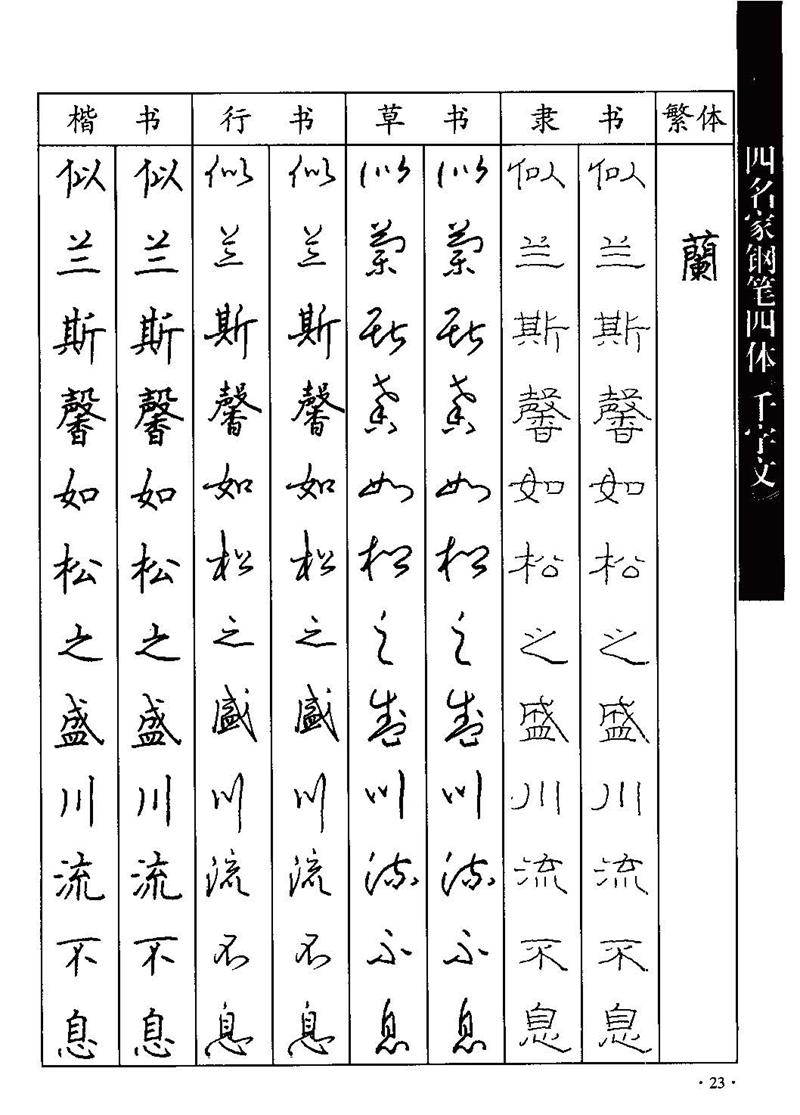 四名家钢笔四体《千字文》
楷书 行书 草书 隶书 繁体
似 似 似 似 似 似 似 似
兰 兰 兰 兰 兰 兰 兰 兰 蘭
斯 斯 斯 斯 斯 斯 斯 斯
馨 馨 馨 馨 馨 馨 馨 馨
如 如 如 如 如 如 如 如
松 松 松 松 松 松 松 松
之 之 之 之 之 之 之 之
盛 盛 盛 盛 盛 盛 盛 盛
川 川 川 川 川 川 川 川
流 流 流 流 流 流 流 流
不 不 不 不 不 不 不 不
息 息 息 息 息 息 息 息
·23·